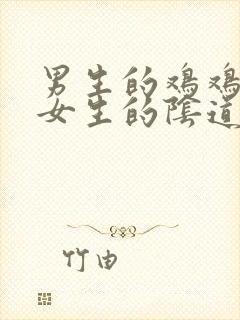 男生的鸡鸡
女生的陰道
竹由